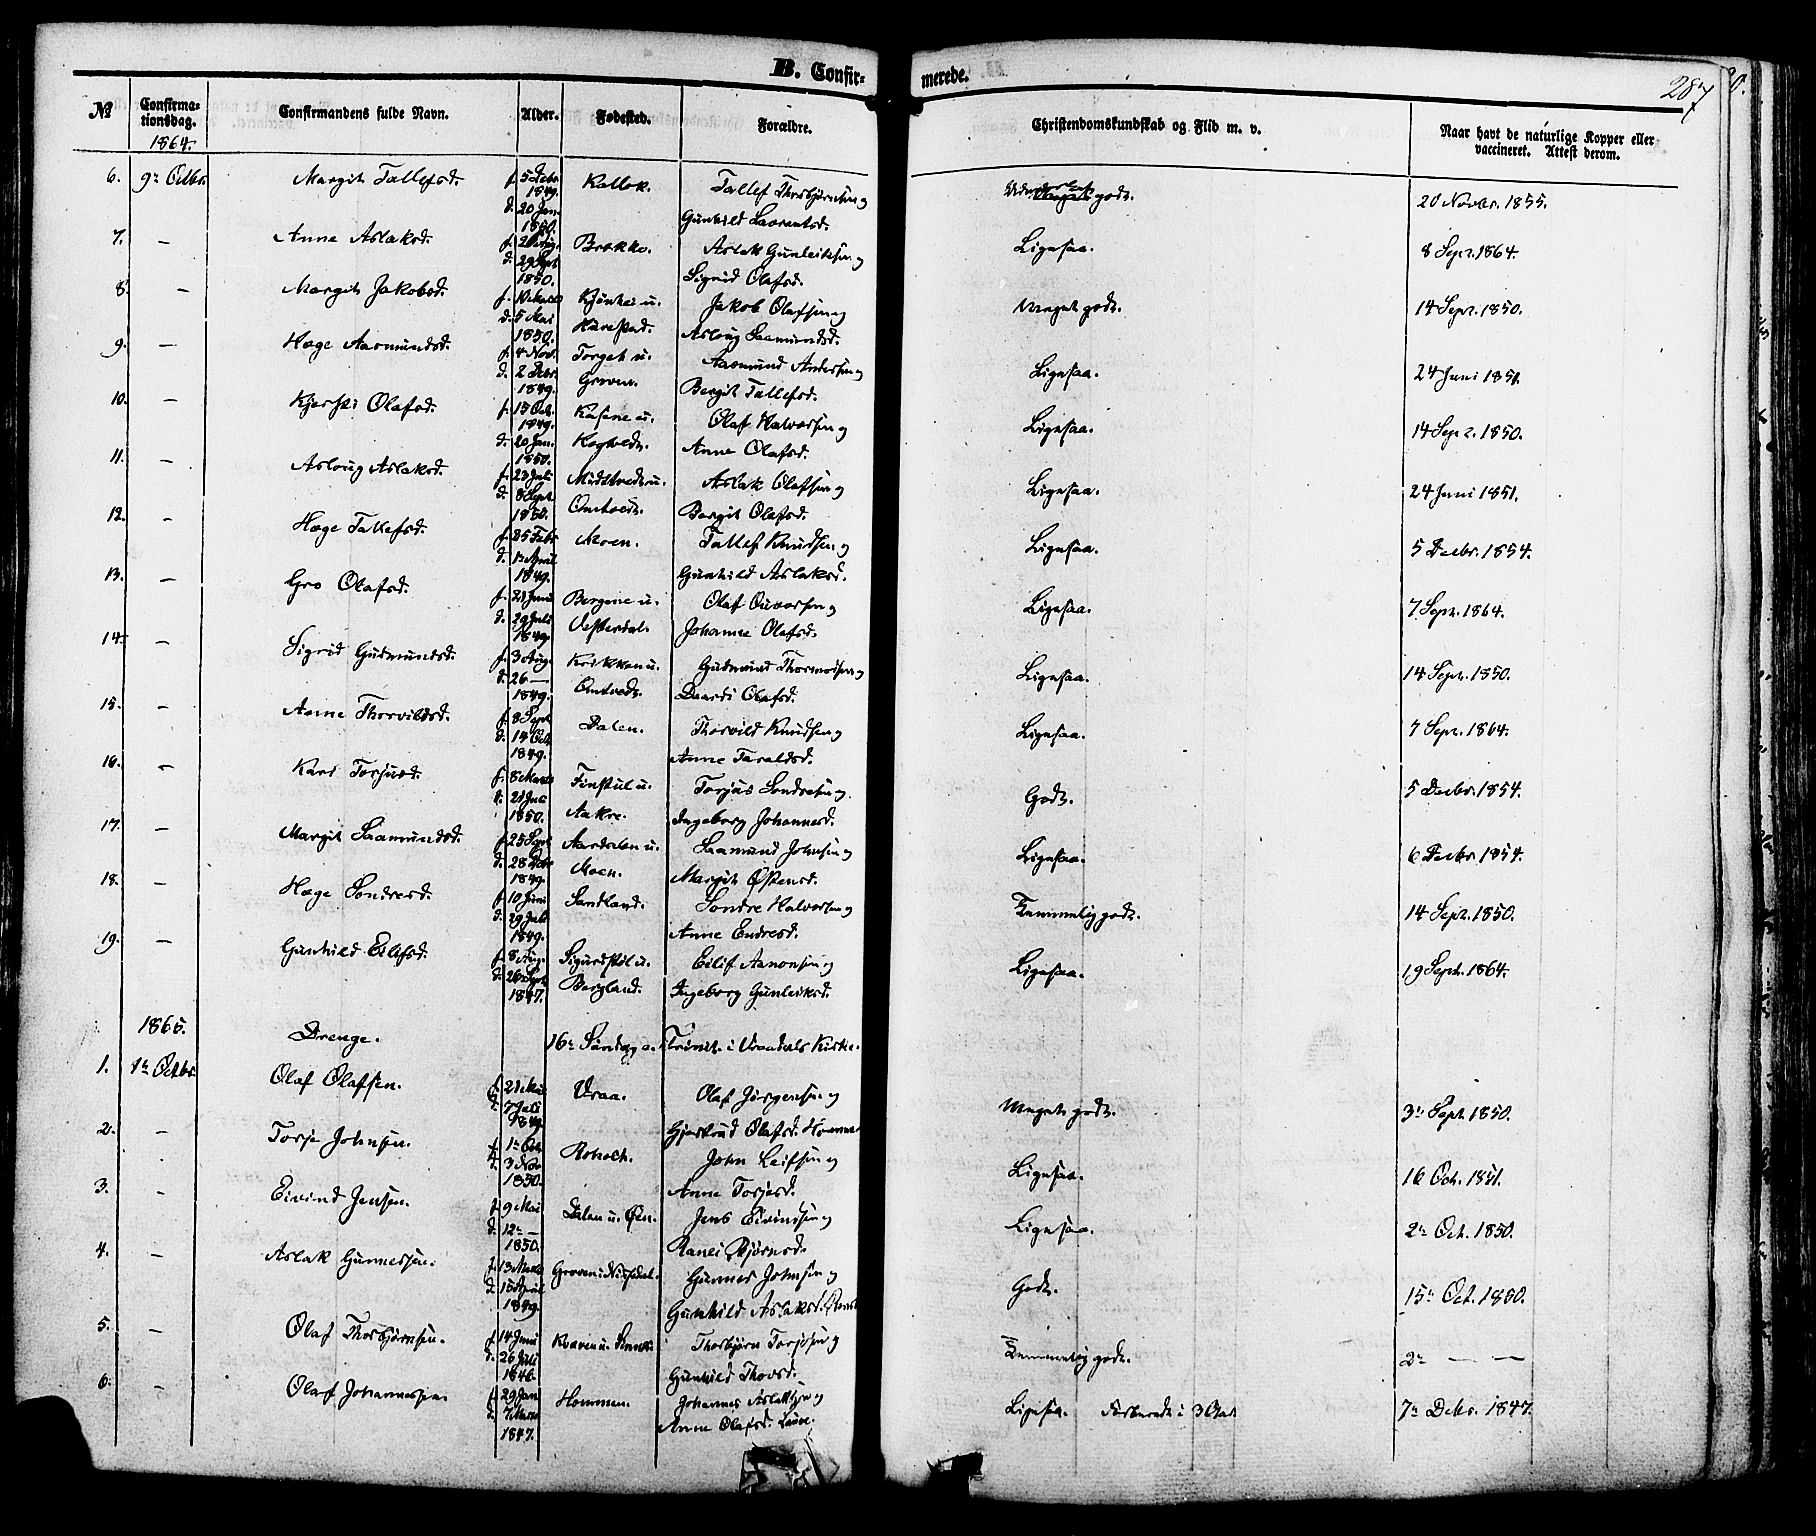 B. Confir-
merede.
287
№ Confirma-tionsdag. Confirmandens fulde Navn. Alder. Fødested. Forældre. Christendomskundskab og Flid m. v. Naar havt de naturlige Kopper eller vaccineret. Attest derom.
1864.
6. 9de Octbr. Margit Tallefsd. f. 5 Debr. 1849. Tallef Thorbjørnsen og godt. 20 Novbr. 1855.
d. 20 Jan. 1850. Gunhild
7. — Anne Aslaksd. f. Brokke. Aslak Gunleiksen og Ligesaa. 8 Sept. 1864.
d. 29 Sept 1850. Sigrid Olafsd.
8. — Margit Jakobsd. f. Jakob Olafsen og Meget godt. 14 Sept. 1850.
d. 5 Mai 1850. Aslaug Saamundsd.
9. — Hæge Aasmundsd. f. 4 Nov. Torget u. Aasmund Andersen og Ligesaa. 24 Juni 1851.
d. 2 Debr. 1849. Groven. Bergit Tallefsd.
10. — Kjersti Olafsd. f. 15 Oct. 1849. Olaf Halvorsen og Ligesaa. 14 Sept. 1850.
d. 20 Jan. 1850. Anne Olafsd.
11. — Aslaug Aslaksd. f. 23 Juli Aslak Olafsen og Ligesaa. 24 Juni 1851.
d. 8 Sept. 1850. Omtvedt. Bergit Olafsd.
12. — Hæge Tallefsd. f. 25 Febr. Moen. Tallef Knudsen og Ligesaa. 5 Decbr. 1854.
d. 1 April 1849. Gunhild Aslaksd.
13. — Gro Olafsd. f. 21 Juni Bergene u. Olaf Ouvorsen og Ligesaa. 7 Sept. 1864.
d. 29 Juli 1849. Vesterdal. Johanne Olafsd.
14. — Sigrid Gudmundsd. f. 3 Aug. Krikken u. Gudmund Thormodsen og Ligesaa. 14 Sept. 1850.
d. 26 — 1849. Omtvedt. Olafsd.
15. — Anne Thorvildsd. f. 8 Sept. Dalen. Thorvild Knudsen og Ligesaa. 7 Sept. 1864.
d. 14 Oct. 1849. Anne Taraldsd.
16. — Kari Torjusd. f. 8 Marts Finstul u. Torjus Sondresen og Godt. 5 Decbr. 1854.
d. 21 Juli 1850. Aakre. Ingeborg Johannesd.
17. — Margit Saamundsd. f. 25 Sept Aardalen u. Saamund Johnsen og Ligesaa. 6 Decbr 1854.
d. 28 Debr 1849. Moen. Margit Østensd.
18. — Hæge Sondresd. f. 10 Juni Sandland. Sondre Halvorsen og Temmelig godt. 14 Sept. 1850.
d. 29 Juli 1849. Anne Endresd.
19. — Gunhild Eilefsd. f. 8 Aug. Sigurdstøl u. Eilif Aanonsen og Ligesaa. 19 Sept. 1864.
d. 26 Sept 1847. Bergland. Ingeborg Gunleiksd.
1865. Drenge. 16de Søndag e. Trinit. i Vraadals Kirke.
1. 1ste Octbr. Olaf Olafsen. f. 21 Mai Vraa. Olaf Jørgensen og Meget godt. 3de Sept. 1850.
d. 7 Juli 1849. Gjertrud Olafsd. Homme
2. — Torje Johnsen. f. 1ste Oct. John Leifsen og Ligesaa. 16 Oct. 1851.
d. 3 Nov 1850. Anne Torjesd.
3. — Eivind Jensen. f. 9 Mai Dalen u. Øen. Jens Eivindsen og Ligesaa. 2den Oct. 1850.
d. 12te — 1850. Ranei Bjørnsd.
4. — Aslak Gunnessen. f. 13 Marts Groven i Nissedal. Gunnes Johnsen og Godt. 15de Oct. 1850.
d. 15 April 1849. Gunhild Aslaksd.
5. — Olaf Thorbjørnsen. f. 14 Juni Thorbjørn Torjesen og Temmelig godt. 2den — —
d. 26 Juli 1846. Gunhild Thorsd.
6. — Olaf Johannessen f. 29 Jan Hommen. Johannes Aslaksen og Ligesaa. Forberedt i 3 Aar. 7de Debr. 1847.
d. 7 Marts 1847. Anne Olafsd.